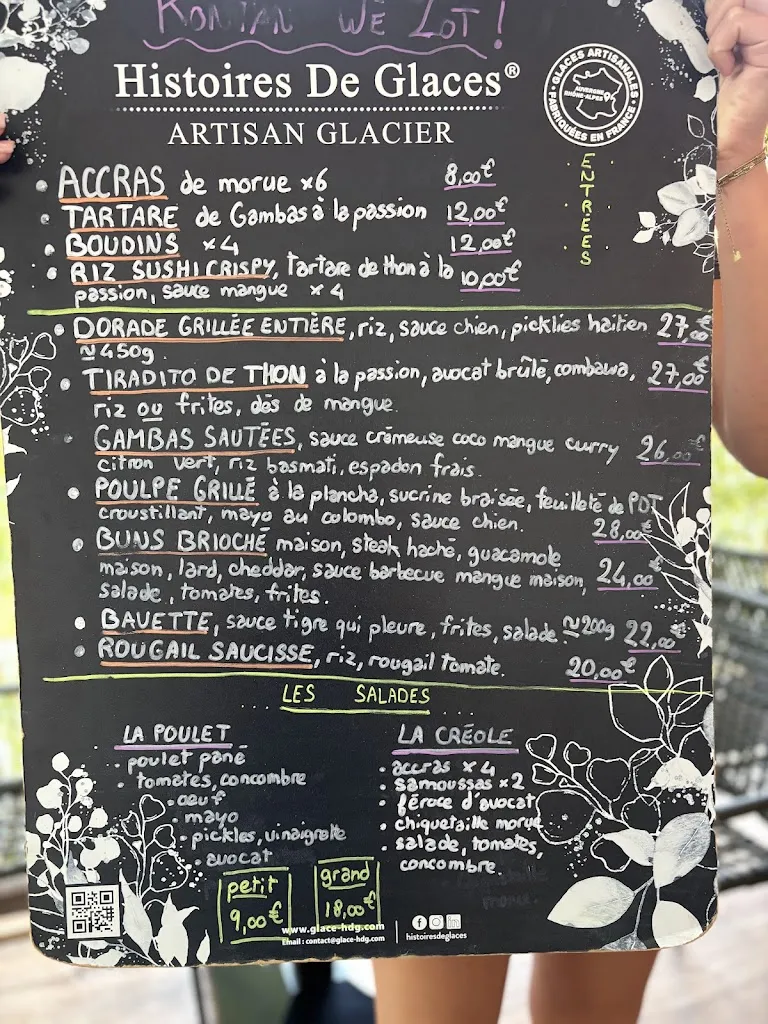 KONTAN WÉ ZOT !
Histoires De Glaces®
ARTISAN GLACIER
GLACES ARTISANALES
AUVERGNE
RHÔNE-ALPES
FABRIQUÉES EN FRANCE
ENTRÉES
ACCRAS de morue x6 8,00€
TARTARE de Gambas à la passion 12,00€
BOUDINS x4 12,00€
RIZ SUSHI CRISPY, tartare de thon à la 10,00€
passion, sauce mangue x4
DORADE GRILLÉE ENTIÈRE, riz, sauce chien, picklies haïtien 27,00€
≈450g
TIRADITO DE THON à la passion, avocat brûlé, combawa, 27,00€
riz ou frites, dés de mangue.
GAMBAS SAUTÉES, sauce crémeuse coco mangue curry 26,00€
citron vert, riz basmati, espadon frais.
POULPE GRILLÉ à la plancha, sucrine braisée, feuilleté de PDT
croustillant, mayo au colombo, sauce chien. 28,00€
BUNS BRIOCHÉ maison, steak haché, guacamole
maison, lard, cheddar, sauce barbecue mangue maison, 24,00
salade, tomates, frites.
BAVETTE, sauce tigre qui pleure, frites, salade ≈200g 22,00€
ROUGAIL SAUCISSE, riz, rougail tomate. 20,00€
LES SALADES
LA POULET
• poulet pané
• tomates, concombre
• oeuf
• mayo
• pickles, vinaigrette
• avocat
LA CRÉOLE
• accras x4
• samoussas x2
• féroce d'avocat
• chiquetaille morue
• salade, tomates,
concombre.
petit
9,00€
grand
18,00€
www.glace-hdg.com
Email : contact@glace-hdg.com
histoiresdeglaces